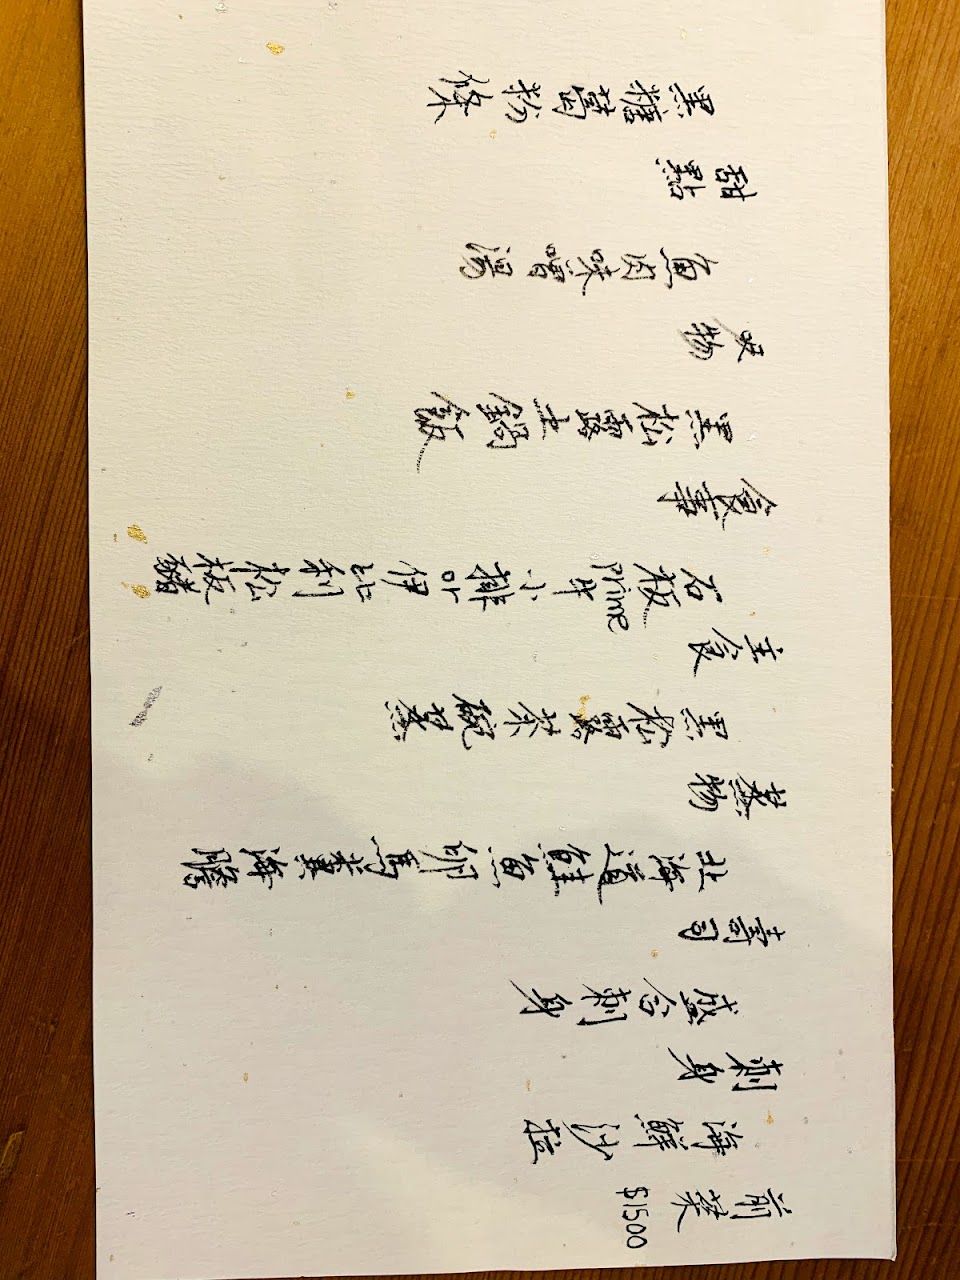 前菜 $1500
海鮮沙拉
刺身
盛合刺身
壽司
北海道鮭魚卵馬糞海膽
蒸物
黑松露茶碗蒸
主食
石板Prime牛小排or伊比利松板豬
食事
黑松露土鍋飯
吸物
魚肉味噌湯
甜點
黑糖葛粉條